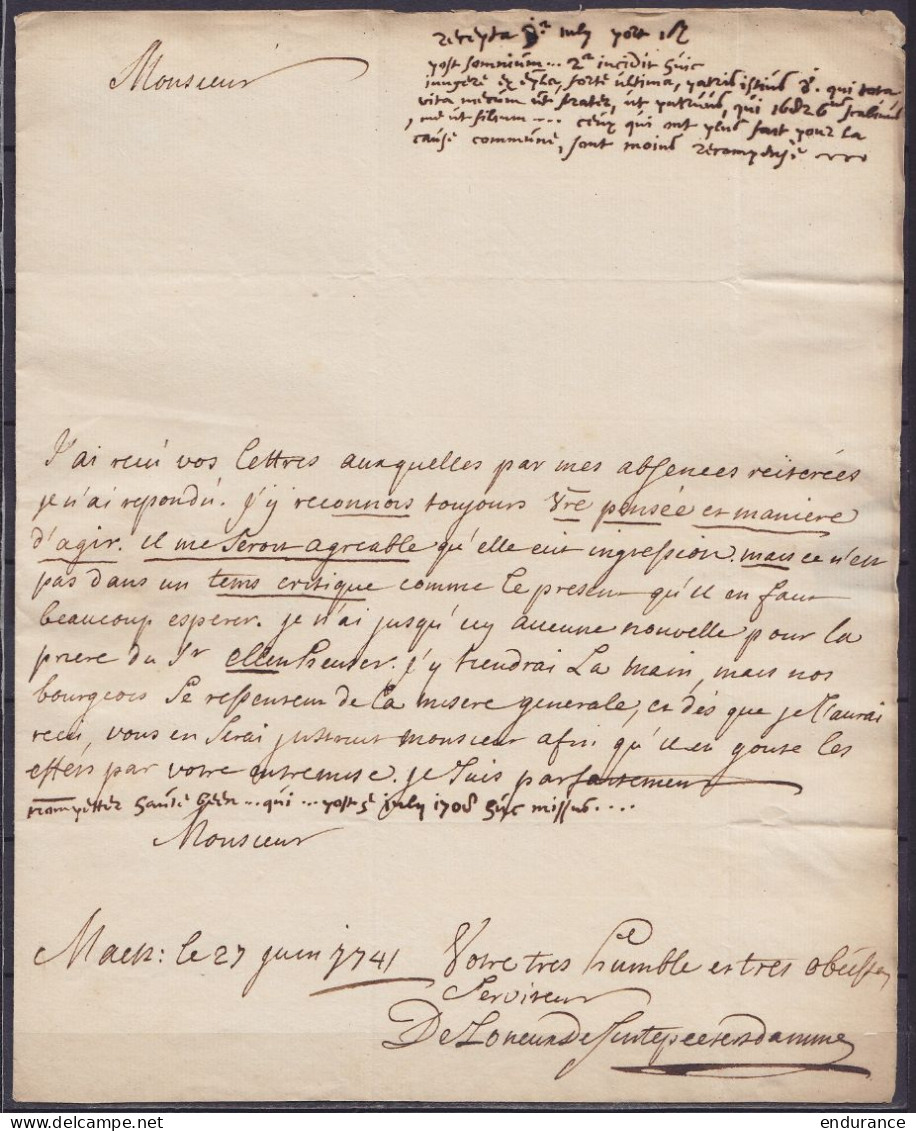 recepta julij post
Monsieur
post somnium... 2ª incidit huic
jungere ex forte ultima, patris istius qui tota
vita mecum ut frater, ut patruus, qui 1682
, me ut filium .... ceux qui ont plus fait pour la
cause commune, sont moins recompensé
J'ai reçu vos lettres auxquelles par mes absences reiterées
je n'ai repondu. j'y reconnois toujours vre pensée et maniere
d'agir. il me seroit agreable qu'elle eut ingression. mais ce n'est
pas dans un tems critique comme le present qu'il en faut
beaucoup esperer. je n'ai jusqu'icy aucune nouvelle pour la
priere du Sr j'y tiendrai la main, mais nos
bourgeois se ressentent de la misere generale, et dés que je l'aurai
recu, vous en serai justement monsieur afin qu'il en goute les
effets par votre entremise. je suis parfaitement
qui ... post 5e july 1708 huc missus....
Monsieur
le 27 juin 1741 Votre tres humble et tres obeissan
Serviteur